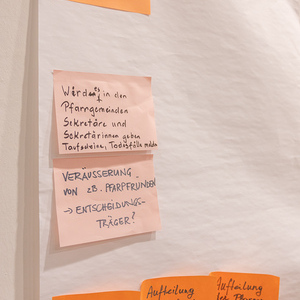 Wird es in den
Pfarrgemeinden
Sekretäre und
Sekretärinnen geben
Taufscheine, Todesfälle melden
VERÄUSSERUNG
VON ZB. PFARRPFRÜNDEN
→ ENTSCHEIDUNGS-
TRÄGER?
Aufteilung
Aufteilung